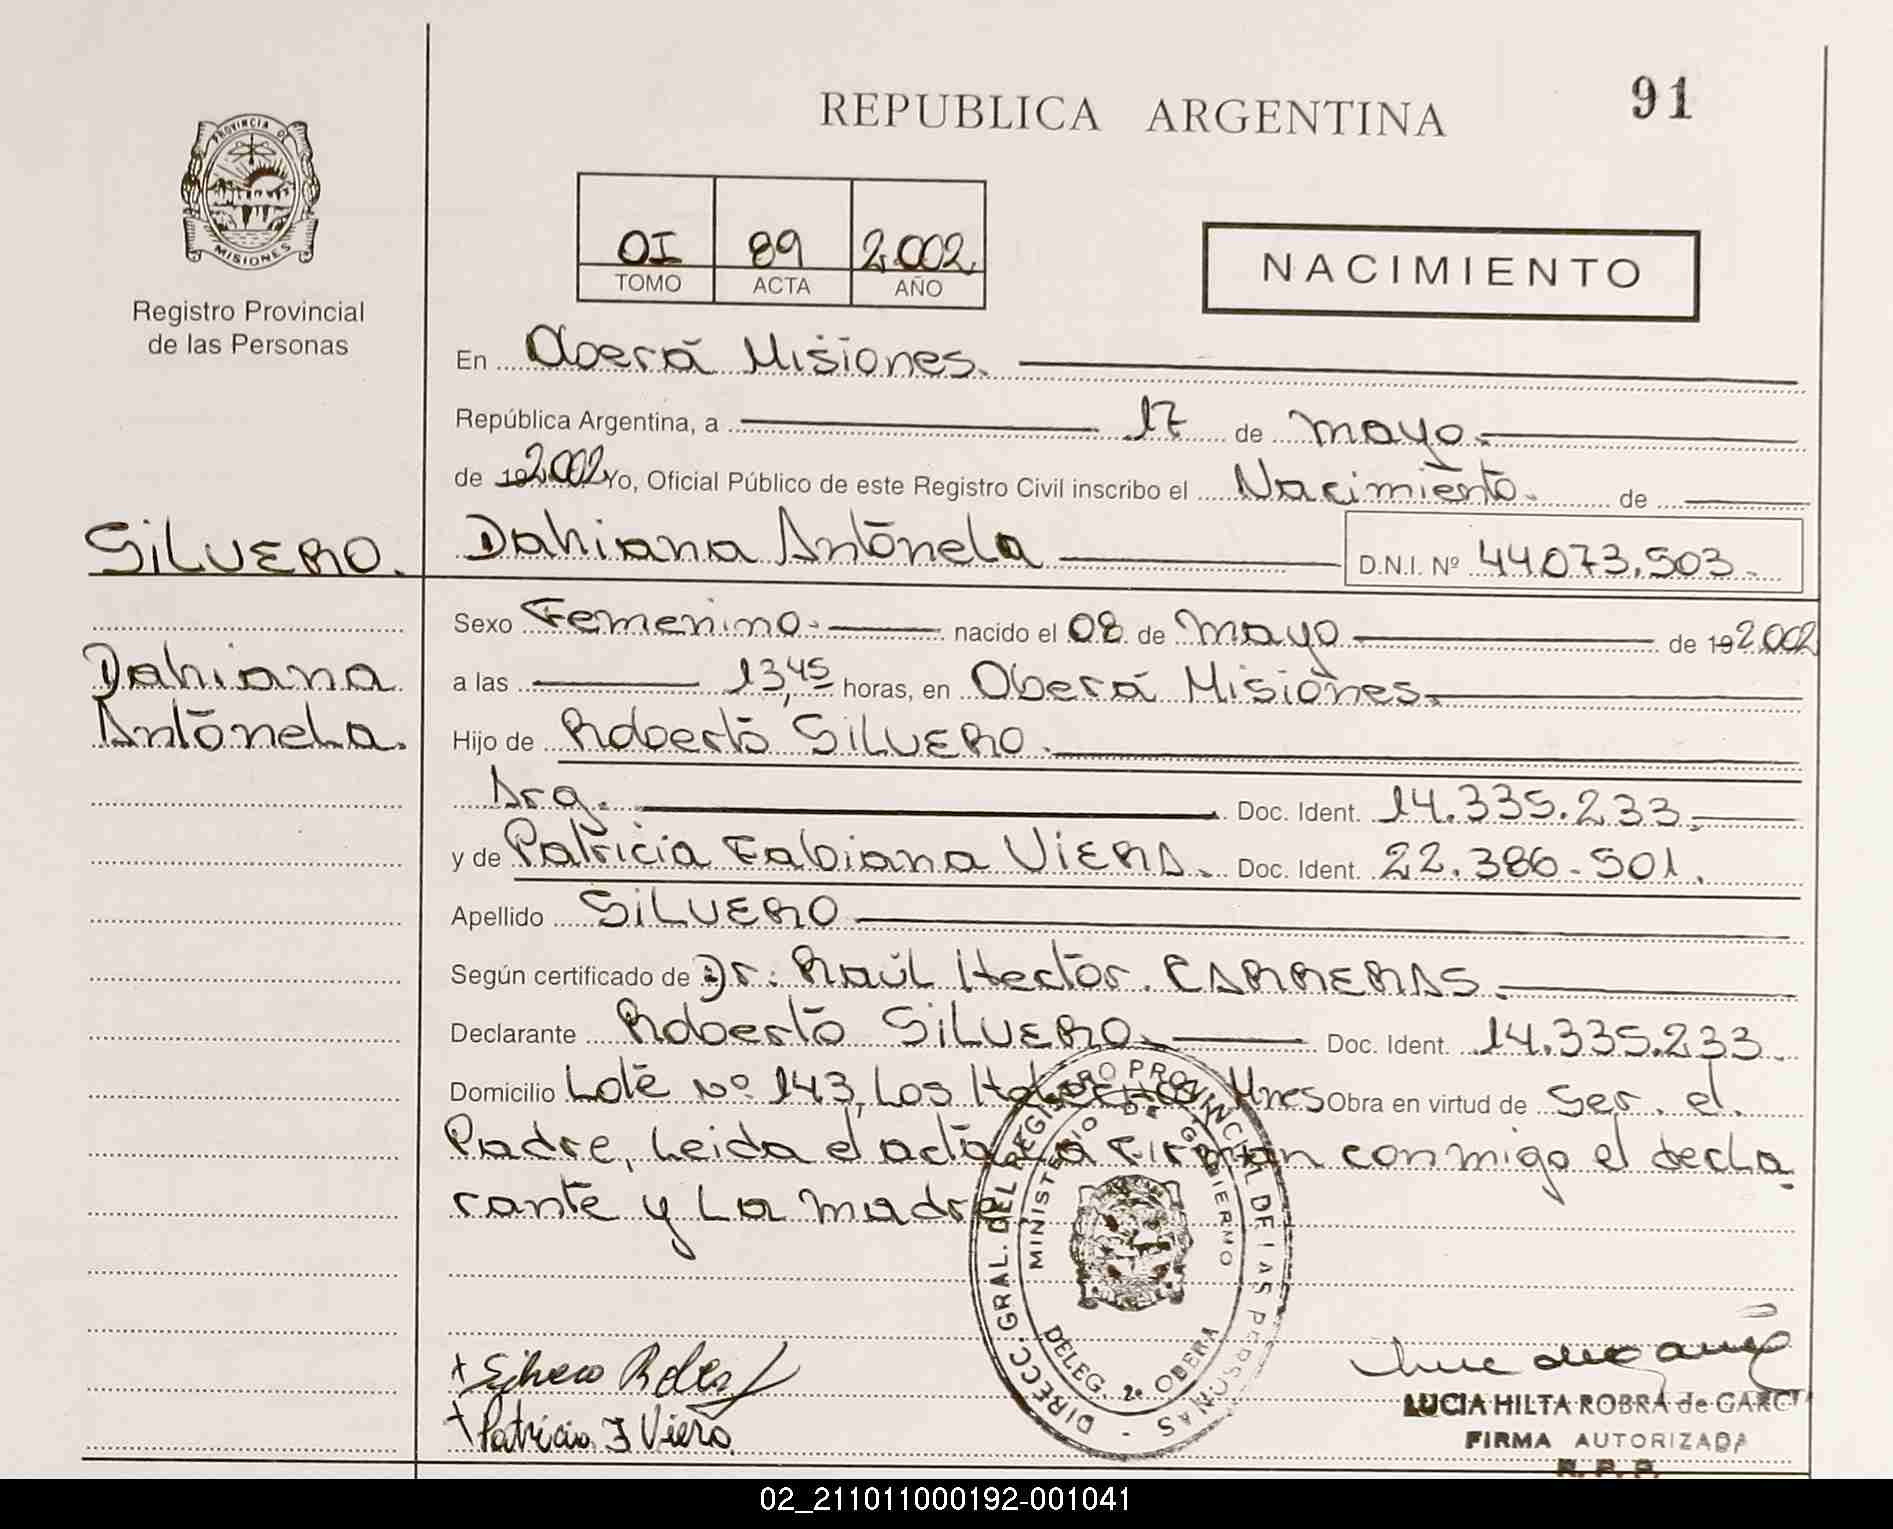 91
REPUBLICA ARGENTINA
PROVINCIA DE
MISIONES
Registro Provincial
de las Personas
0I 89 2.002
TOMO ACTA AÑO
NACIMIENTO
En Oberá Misiones.
República Argentina, a 17 de mayo.
de 19 2.002 Yo, Oficial Público de este Registro Civil inscribo el Nacimiento. de
SILVERO. Dahiana Antonela D.N.I. Nº 44.073.503.
Sexo Femenino. nacido el 08 de mayo de 19 2.002
Dahiana a las 13,45 horas, en Oberá Misiones.
Antonela. Hijo de Roberto SILVERO.
Arg. Doc. Ident. 14.335.233.
y de Patricia Fabiana VIERA. Doc. Ident. 22.386.501.
Apellido SILVERO
Según certificado de Dr. Raúl Hector CARRERAS.
Declarante Roberto SILVERO. Doc. Ident. 14.335.233.
Domicilio Lote Nº 143, Los Mnes Obra en virtud de Ser el
Padre, Leida el acta La Firman conmigo el decla
rante y La madre
DIRECC. GRAL. DEL REGISTRO PROVINCIAL DE LAS PERSONAS
MINISTERIO DE GOBIERNO
DELEG. 2ª OBERA
Silvero Robert
Patricia F Viera
LUCIA HILTA ROBRA de GARCI
FIRMA AUTORIZADA
R. P. P.
02_211011000192-001041